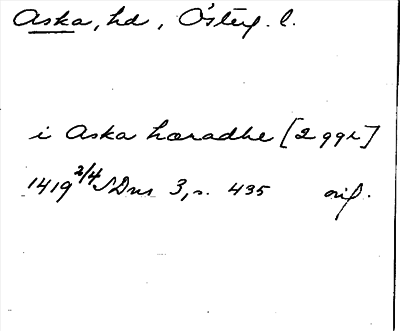 Aska, hd, Österg. l.
i Aska hæradhe [2 ggr]
1419 2/4 SDns 3, s. 435 orig.